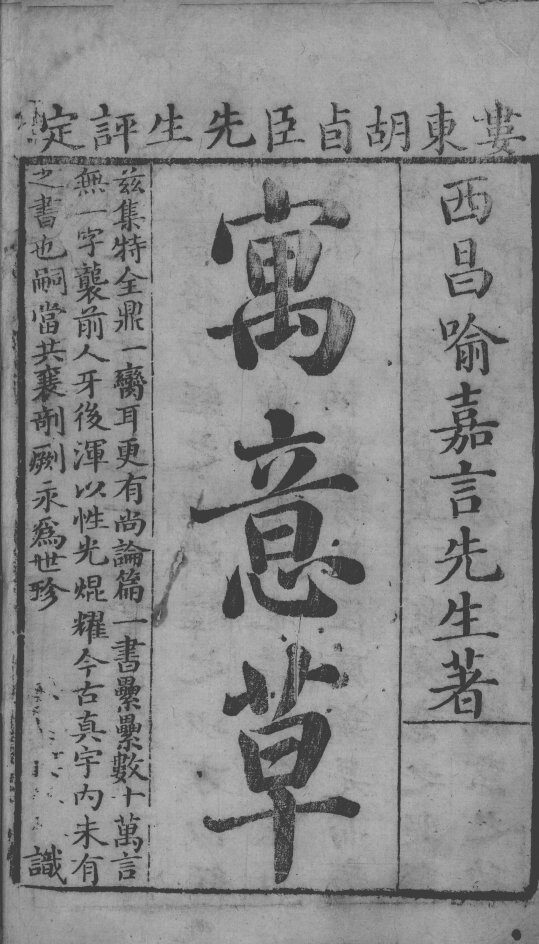 婁東胡卣臣先生評定
西昌喻嘉言先生著
寓意草
兹集特全鼎一臠耳更有尚論篇一書纍纍數十萬言
無一字襲前人牙後渾以性光焜耀今古真宇内未有
之書也嗣當共襄剞劂永為世珍
識